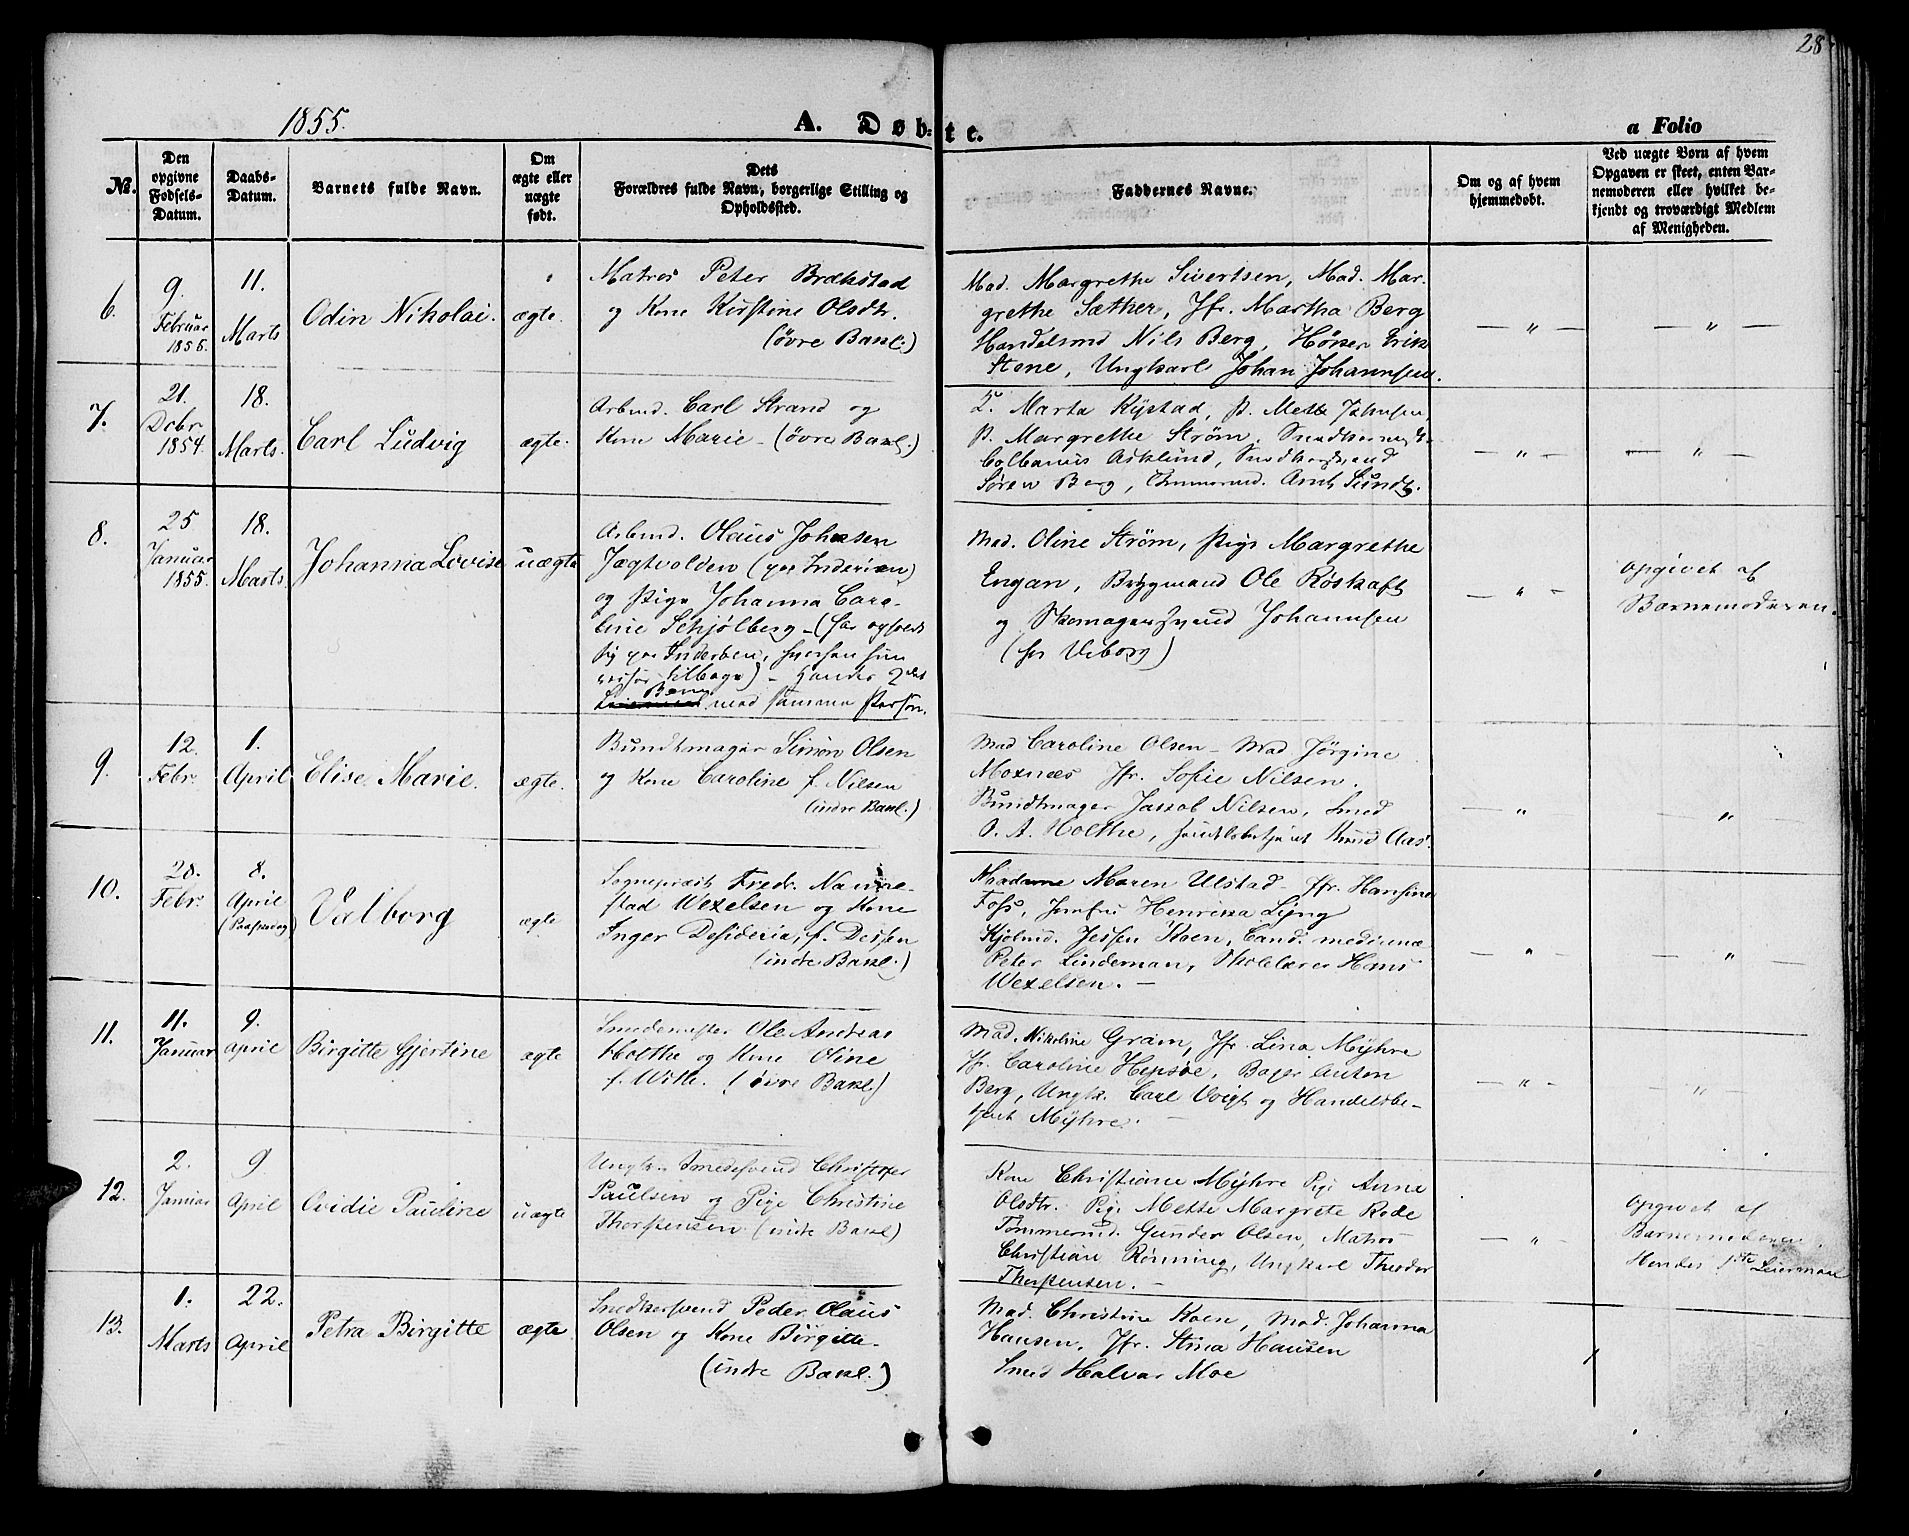 28
1855.
A. Døb-
te.
a Folio
No.
Den
opgivne
Fødsels-
Datum.
Daabs-
Datum.
Barnets fulde Navn.
Om
ægte eller
uægte
født.
Dets
Forældres fulde Navn, borgerlige Stilling og
Opholdssted.
Faddernes Navne.
Om og af hvem
hjemmedøbt.
Ved uægte Børn af hvem
Opgaven er skeet, enten Bar-
nemoderen eller hvilket be-
kjendt og troværdigt Medlem
af Menigheden.
6.
9.
Februar
1855.
11.
Marts
Odin Nikolai.
ægte.
Matros Peter Brækstad
og Kone Kirstine Olsdtr.
(øvre Bakl.)
Mad. Margrethe Sivertsen, Mad. Mar-
grethe Sæther, Jfr. Martha Berg
Handelsmd Nils Berg, Høker Erik
Stene, Ungkarl Johan Johannsen.
— " —
— " —
7.
21.
Dcbr
1854.
18.
Marts.
Carl Ludvig
ægte.
Arbmd. Carl Strand og
Kone Marie - (øvre Bakl.)
Marta Kystad, P. Mette Johnsen
P. Margrethe Strøm,
Colbanus Asklund,
Søren Berg, Tømmermd. Arnt Sundt.
— " —
— " —
8.
25
Januar
1855.
18.
Marts
Johanna Lovise
uægte
Arbmd. Olaus Johnsen
Jægtvolden (paa Inderøen)
og Pige Johanna Caro-
line Schjølberg - (har opholdt
sig paa Inderøen, hvorfra hun
reiser tilbage) - Hendes 2det
Barn
med samme Person.
Mad. Oline Strøm, Pige Margrethe
Engan, Brygmand Ole Røskaft
og Skomagersvend Johannsen
(hos Viborg)
— " —
opgivet af
Barnemoderen.
9.
12.
Febr.
1.
April
Elise Marie.
ægte.
Bundtmager Simon Olsen
og Kone Caroline f. Nilsen
(indre Bakl.)
Mad Caroline Olsen - Mad Jørgine
Moxnæs Jfr. Sofie Nilsen.
Bundtmager Jakob Nilsen, Smed
O. A. Holthe, Handelsbetjent Knud Aas.
— " —
— " —
10.
28.
Febr.
8.
April
(Paaskedag)
Valborg
ægte
Sognepræst Fredr. Nanne-
stad Wexelsen og Kone
Inger Desideria, f. Dessen
(indre Bakl.)
Madame Maren Ulstad - Jfr. Hansine
Foss, Jomfru Henrikka Lyng
Kjøbmd. Jessen Koen, Cand. medicinæ
Peter Lindeman, Skolelærer Hans
Wexelsen. —
— " —
— " —
11.
11.
Januar
9.
April
Birgitte Gjertine
ægte
Smedemester Ole Andreas
Holthe og Kone Oline
f. Witte. (øvre Bakl.)
Mad. Nikoline Gram, Jfr. Lina Myhre
Jfr. Caroline Hepsøe, Bager Anton
Berg, Ungk. Carl Voigt og Handelsbe-
tjent Myhre. —
— " —
— " —
12.
2.
Januar
9
April
Ovidie Pauline
uægte
Ungk. Smedesvend Christofer
Paulsen og Pige Christine
Thorstensen (indre Bakl)
Kone Christiane Myhre Pige Anna
Olsdtr. Pige Mette Margrete Rode
Tømmermd. Gunder Olsen, Matros
Christian Rønning, Ungkarl Theodor
Thorstensen. —
— " —
opgivet af
Barnemoderen.
Hendes 1ste Leiermaal
13.
1.
Marts
22.
April
Petra Birgitte
ægte.
Snedkersvend Peder Olaus
Olsen og Kone Birgitte.
(indre Bakl.)
Mad. Christine Koen, Mad. Johanna
Hansen, Jfr. Stina Hansen
Smed Halvar Moe